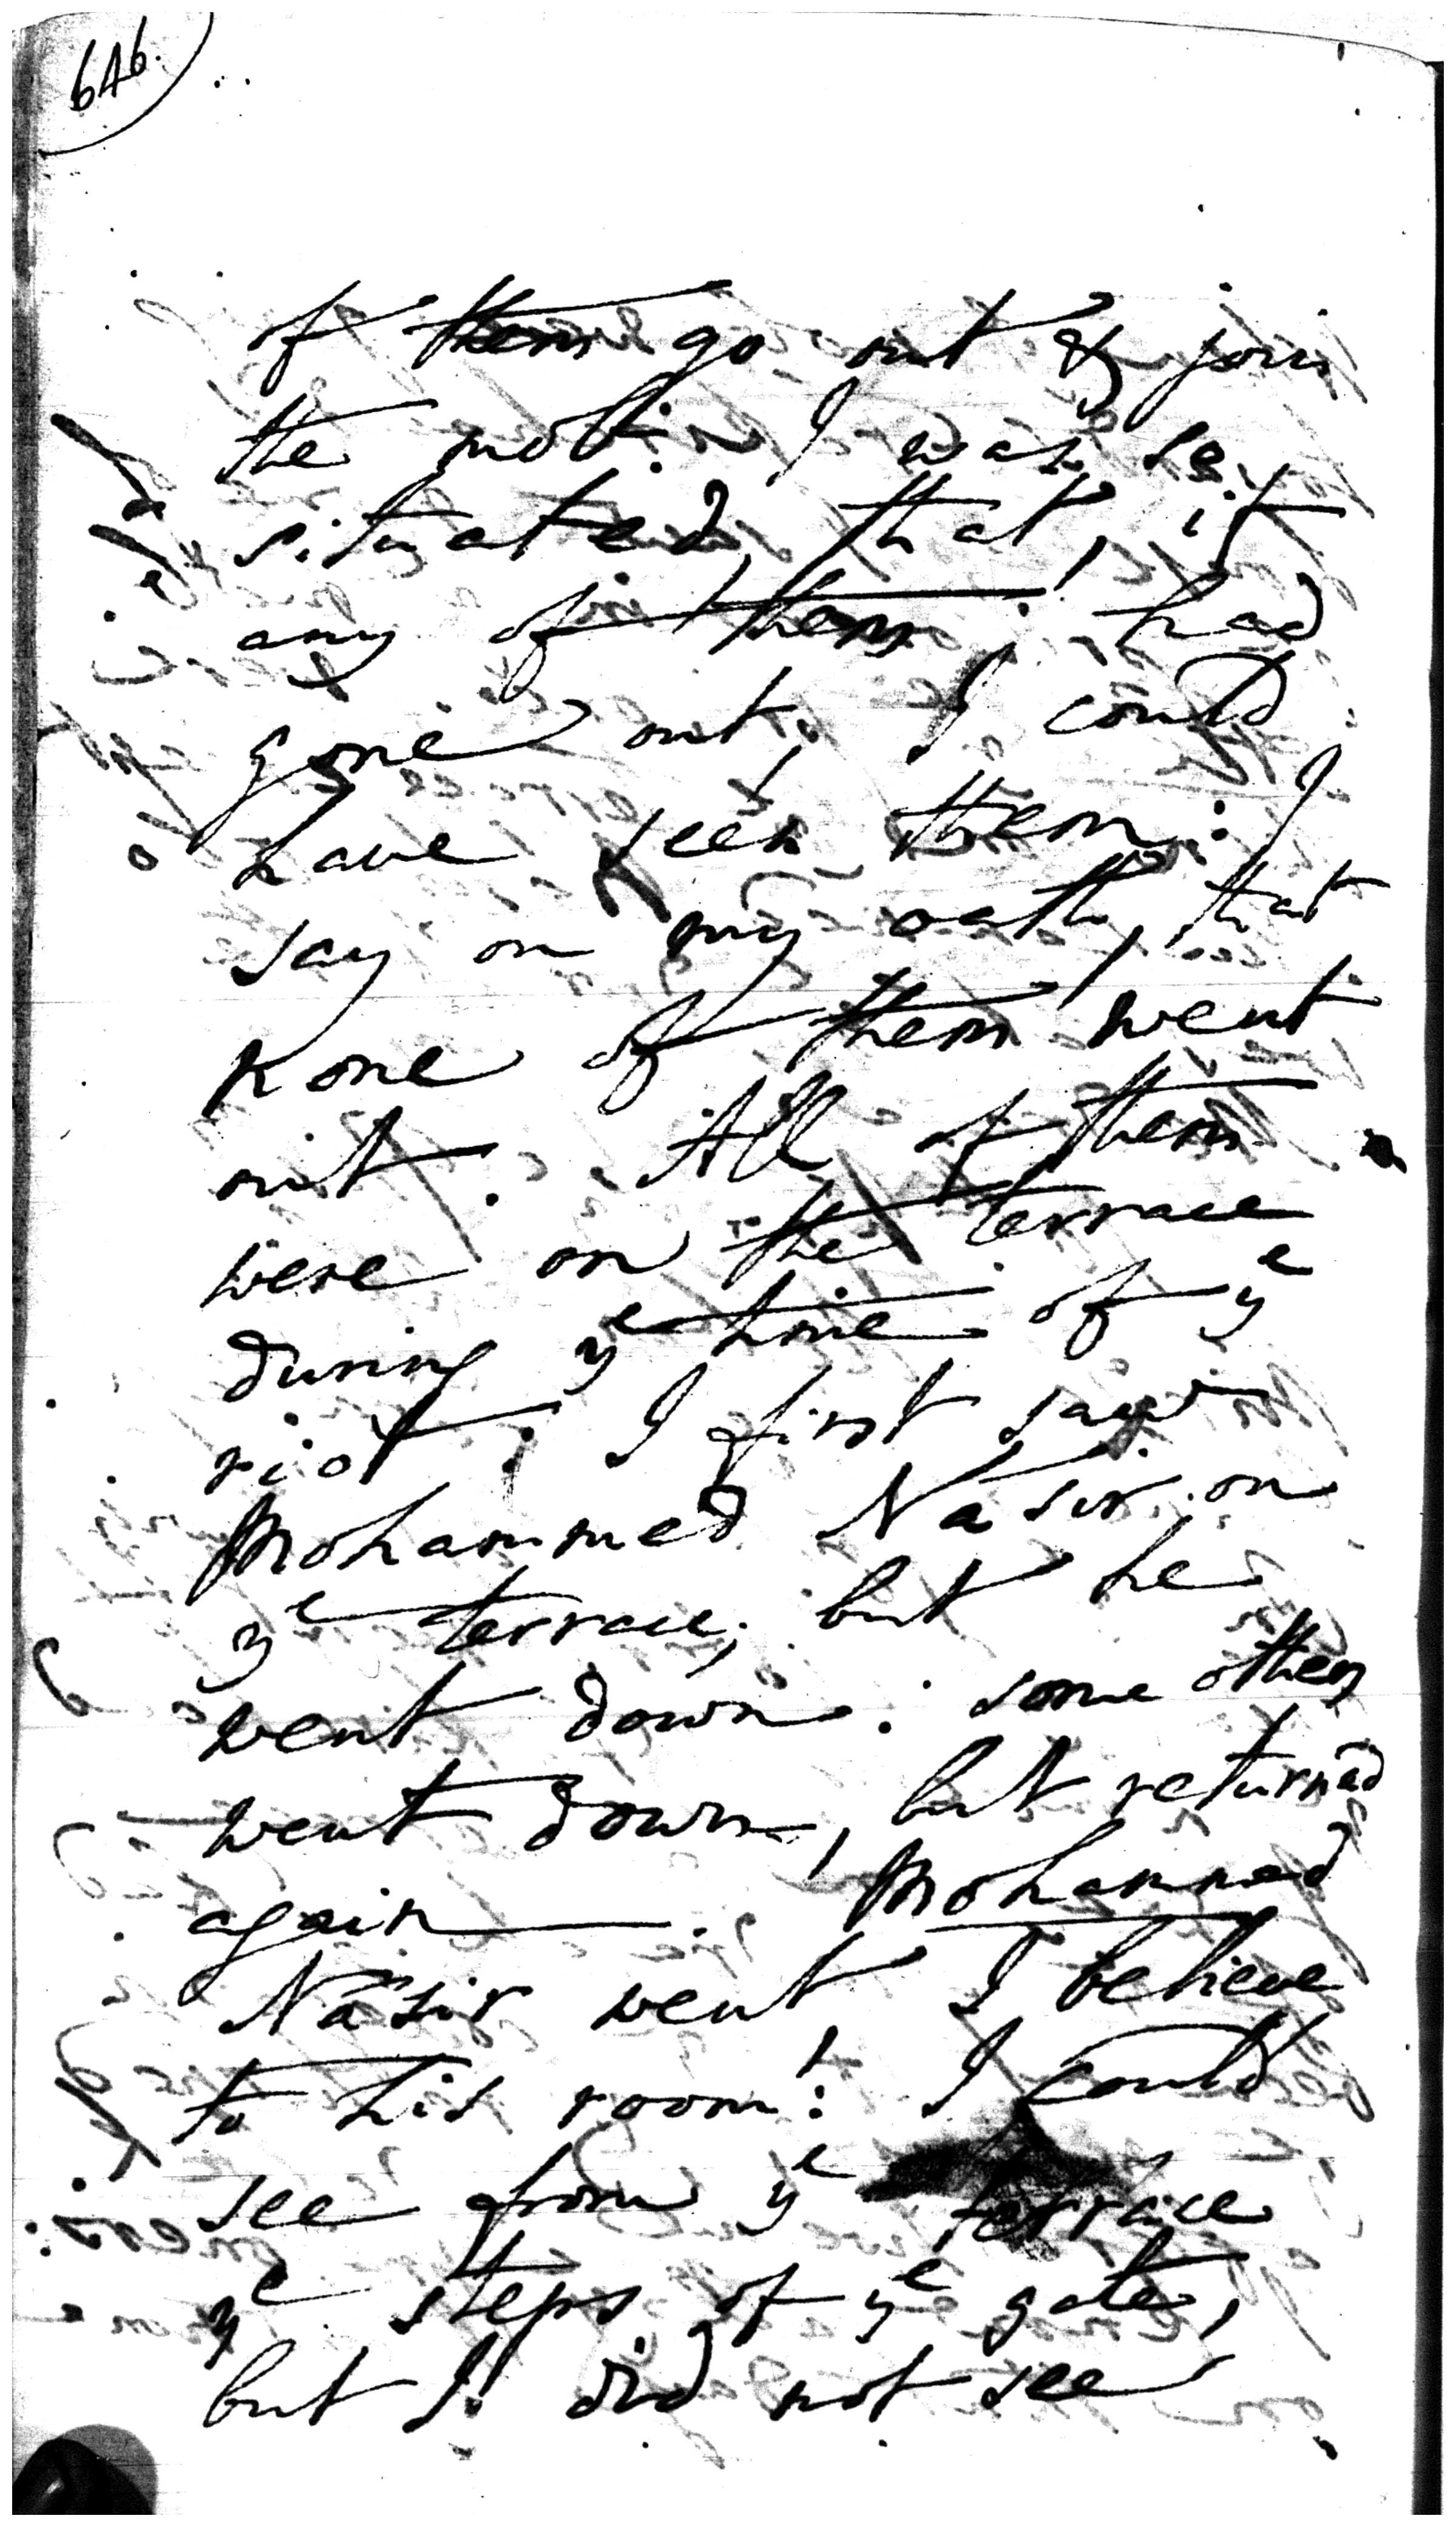 646.
of them go out & join
the mob: I was so
situated, that, if
any of them had
gone out, I could
have seen them: I
say on my oath, that
none of them went
out. All of them
were on the terrace
during yᵉ time of yᵉ
riot: I first saw
Mohammed Nasir on
yᵉ terrace; but he
went down: some others
went down, but returnād
again —. Mohammed
Nāsir went I believe
to his room: I could
see from yᵉ terrace
yᵉ steps of yᵉ gate,
but I did not see